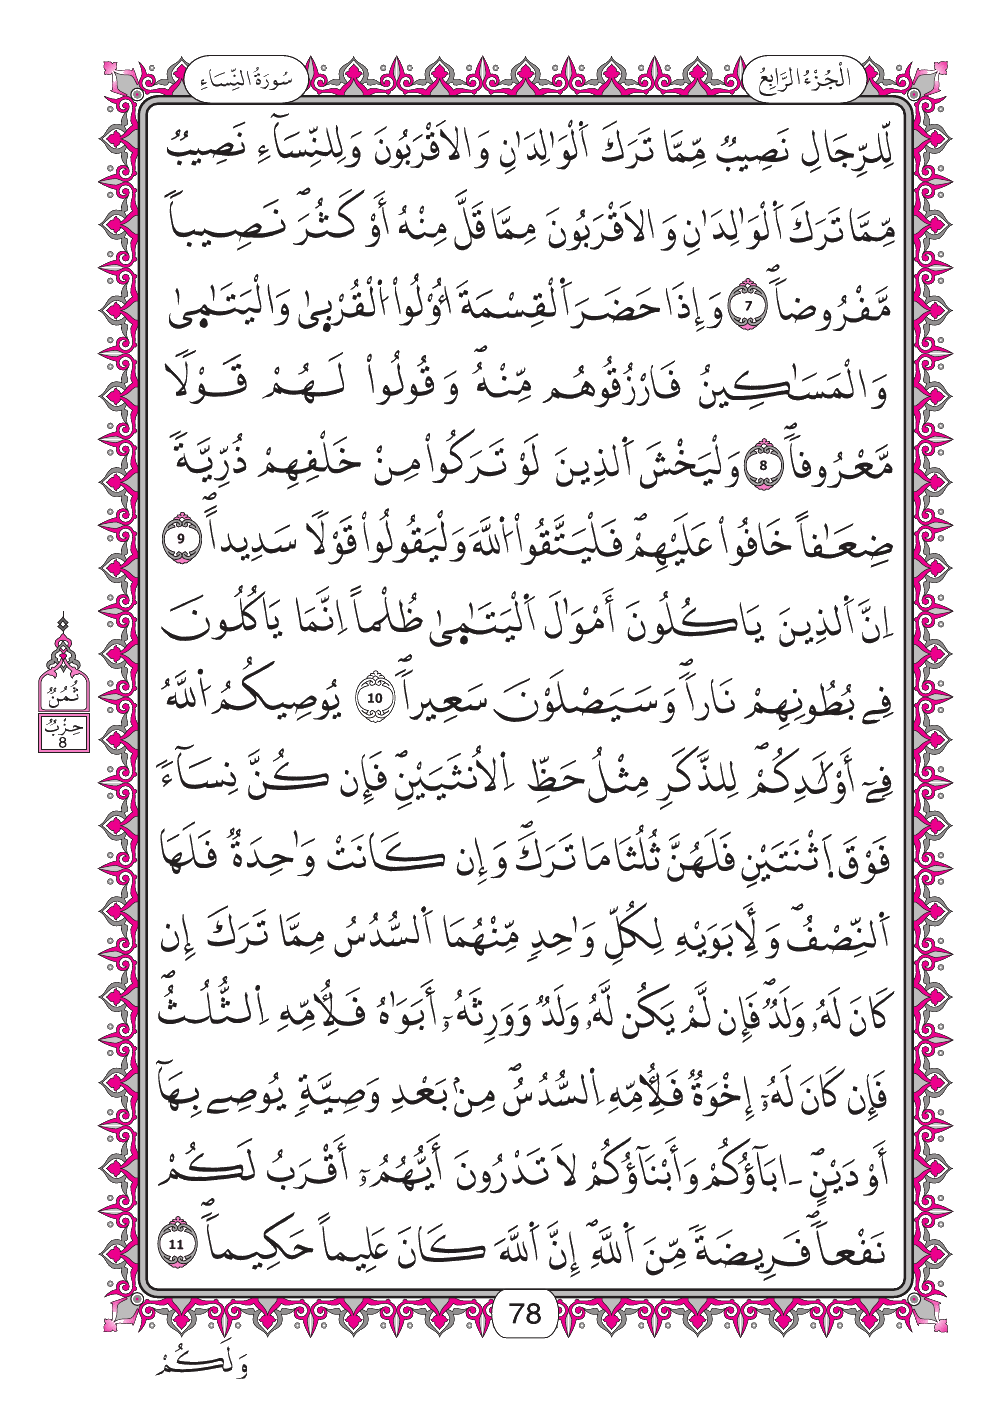 الْجُزْءُ الرَّابِعُ
سُورَةُ النِّسَاءِ
لِّلرِّجَالِ نَصِيبٌ مِّمَّا تَرَكَ اَ۬لْوَٰلِدَٰنِ وَالَاقْرَبُونَ وَلِلنِّسَآءِ نَصِيبٌ
مِّمَّا تَرَكَ اَ۬لْوَٰلِدَٰنِ وَالَاقْرَبُونَ مِمَّا قَلَّ مِنْهُ أَوْ كَثُرَۖ نَصِيباً
مَّفْرُوضاًۖ 7 وَإِذَا حَضَرَ اَ۬لْقِسْمَةَ أُوْلُواْ اُ۬لْقُرْبٰى وَالْيَتَٰمٰى
وَالْمَسَٰكِينُ فَارْزُقُوهُم مِّنْهُۖ وَقُولُواْ لَهُمْ قَوْلاً
مَّعْرُوفاًۖ 8 وَلْيَخْشَ اَ۬لذِينَ لَوْ تَرَكُواْ مِنْ خَلْفِهِمْ ذُرِّيَّةً
ضِعَٰفاً خَافُواْ عَلَيْهِمْۖ فَلْيَتَّقُواْ اُ۬للَّهَ وَلْيَقُولُواْ قَوْلاً سَدِيداًۖ 9
اِنَّ اَ۬لذِينَ يَاكُلُونَ أَمْوَٰلَ اَ۬لْيَتَٰمٰى ظُلْماً اِنَّمَا يَاكُلُونَ
فِے بُطُونِهِمْ نَاراًۖ وَسَيَصْلَوْنَ سَعِيراًۖ 10 يُوصِيكُمُ اُ۬للَّهُ
فِےٓ أَوْلَٰدِكُمْۖ لِلذَّكَرِ مِثْلُ حَظِّ اِ۬لُانثَيَيْنِۖ فَإِن كُنَّ نِسَآءً
فَوْقَ اَ۪ثْنَتَيْنِ فَلَهُنَّ ثُلُثَا مَا تَرَكَۖ وَإِن كَانَتْ وَٰحِدَةٌ فَلَهَا
اَ۬لنِّصْفُۖ وَلِأَبَوَيْهِ لِكُلِّ وَٰحِدٍ مِّنْهُمَا اَ۬لسُّدُسُ مِمَّا تَرَكَ إِن
كَانَ لَهُۥ وَلَدٌۖ فَإِن لَّمْ يَكُن لَّهُۥ وَلَدٌ وَوَرِثَهُۥٓ أَبَوَٰهُ فَلِأُمِّهِ اِ۬لثُّلُثُۖ
فَإِن كَانَ لَهُۥٓ إِخْوَةٌ فَلِأُمِّهِ اِ۬لسُّدُسُۖ مِنۢ بَعْدِ وَصِيَّةٍ يُوصِے بِهَآ
أَوْ دَيْنٍۖ ـ اٰبَآؤُكُمْ وَأَبْنَآؤُكُمْ لَا تَدْرُونَ أَيُّهُمُۥٓ أَقْرَبُ لَكُمْ
نَفْعاًۖ فَرِيضَةً مِّنَ اَ۬للَّهِۖ إِنَّ اَ۬للَّهَ كَانَ عَلِيماً حَكِيماًۖ 11
ثُمُنٌ
حِزْبٌ
8
78
وَلَكُمْ